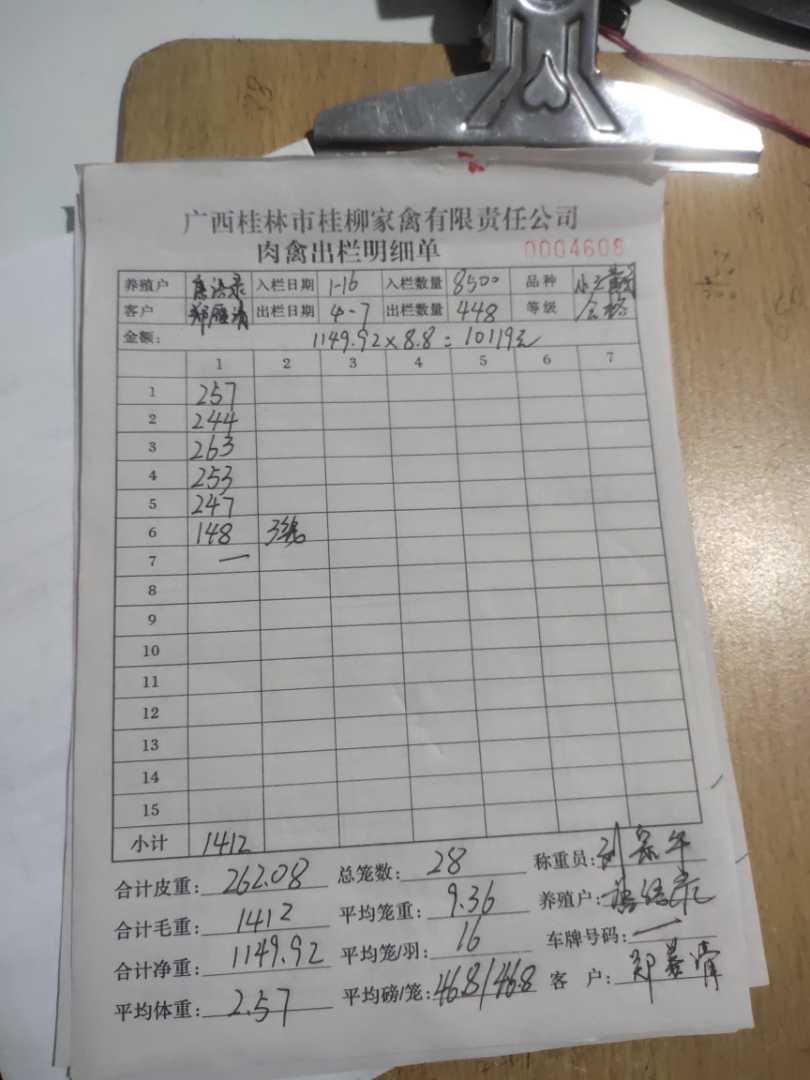 广西桂林市桂柳家禽有限责任公司
肉禽出栏明细单 0004608
养殖户 入栏日期 1-16 入栏数量 8500 品种
客户 郑 出栏日期 4-7 出栏数量 448 等级 合格
金额: 1149.92×8.8=10119元
1 2 3 4 5 6 7
1 257
2 244
3 263
4 253
5 247
6 148 3
7 一
8
9
10
11
12
13
14
15
小计 1412
合计皮重: 262.08 总笼数: 28 称重员: 刘
合计毛重: 1412 平均笼重: 9.36 养殖户:
合计净重: 1149.92 平均笼/羽: 16 车牌号码: 一
平均体重: 2.57 平均磅/笼: 46.8/46.8 客户: 郑